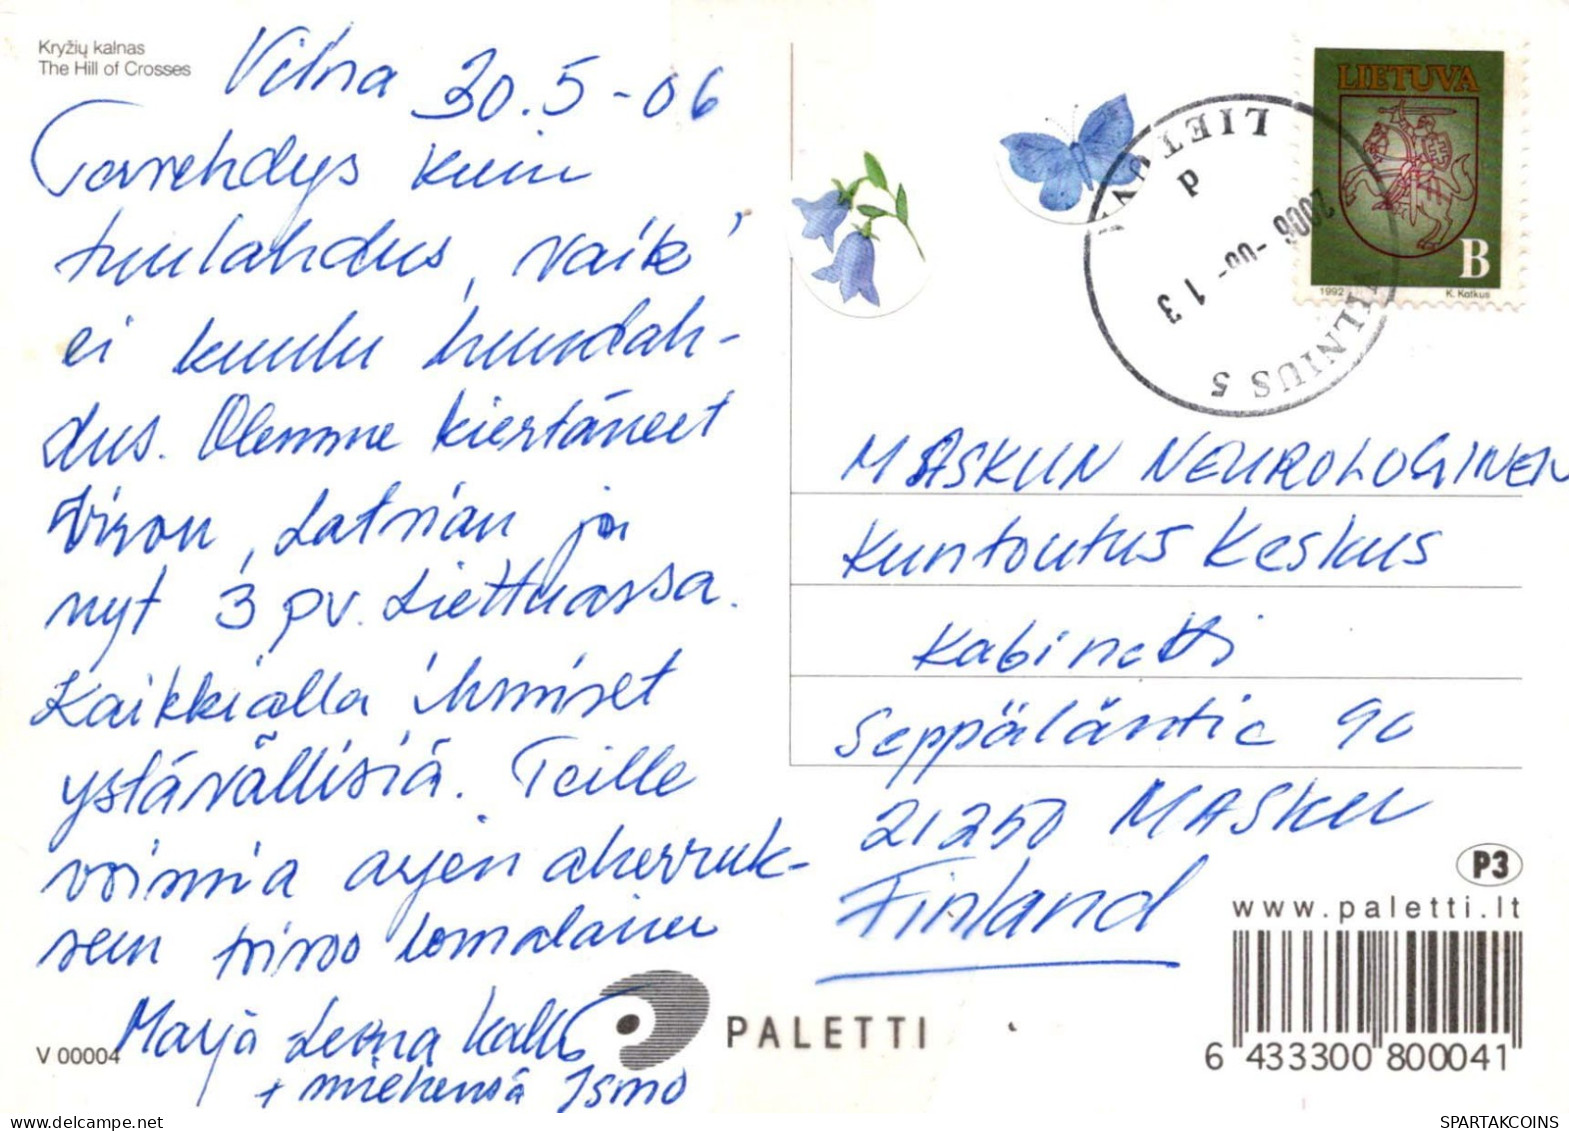 Kryžių kalnas
The Hill of Crosses
Vilna 30.5-06
Tervehdys kuin
tuulahdus, vaik'
ei kuulu huudah-
dus. Olemme kiertäneet
Viron, Latvian ja
nyt 3 pv. Liettuassa.
Kaikkialla ihmiset
ystävällisiä. Teille
voimia arjen aherruk-
seen toivoo lomalainen
Marja Leena
+ miehensä Ismo
V 00004
PALETTI
LIETUVA
B
1992 K. Katkus
LIETUVA
d
2006 -06- 1 3
VILNIUS 5
MASKUN NEUROLOGINEN
Kuntoutus Keskus
Kabinetti
Seppäläntie 90
21250 MASKU
Finland
P3
www.paletti.lt
6 433300 800041
SPARTAKCOINS
delcampe.net